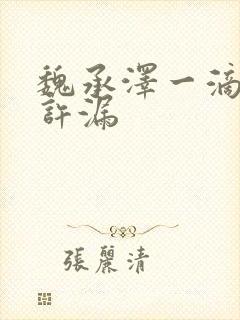 魏承澤一滴
許漏
張麗清